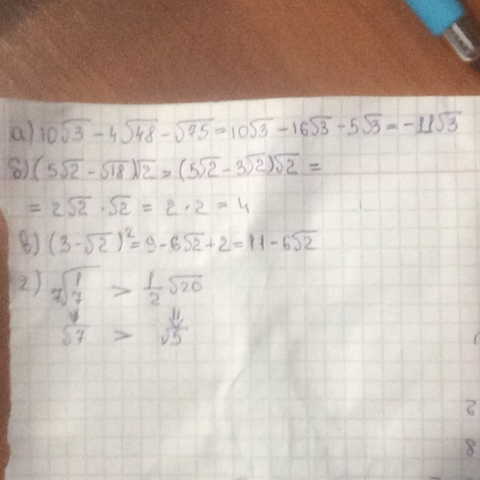 а) 10√3 - 4√48 - √75 = 10√3 - 16√3 - 5√3 = -11√3
б) (5√2 - √18)√2 = (5√2 - 3√2)√2 =
= 2√2 · √2 = 2 · 2 = 4
в) (3 - √2)² = 9 - 6√2 + 2 = 11 - 6√2
г) 7√(1/7) > 1/2 √20
⇓ ⇓
√7 > √5
2
8